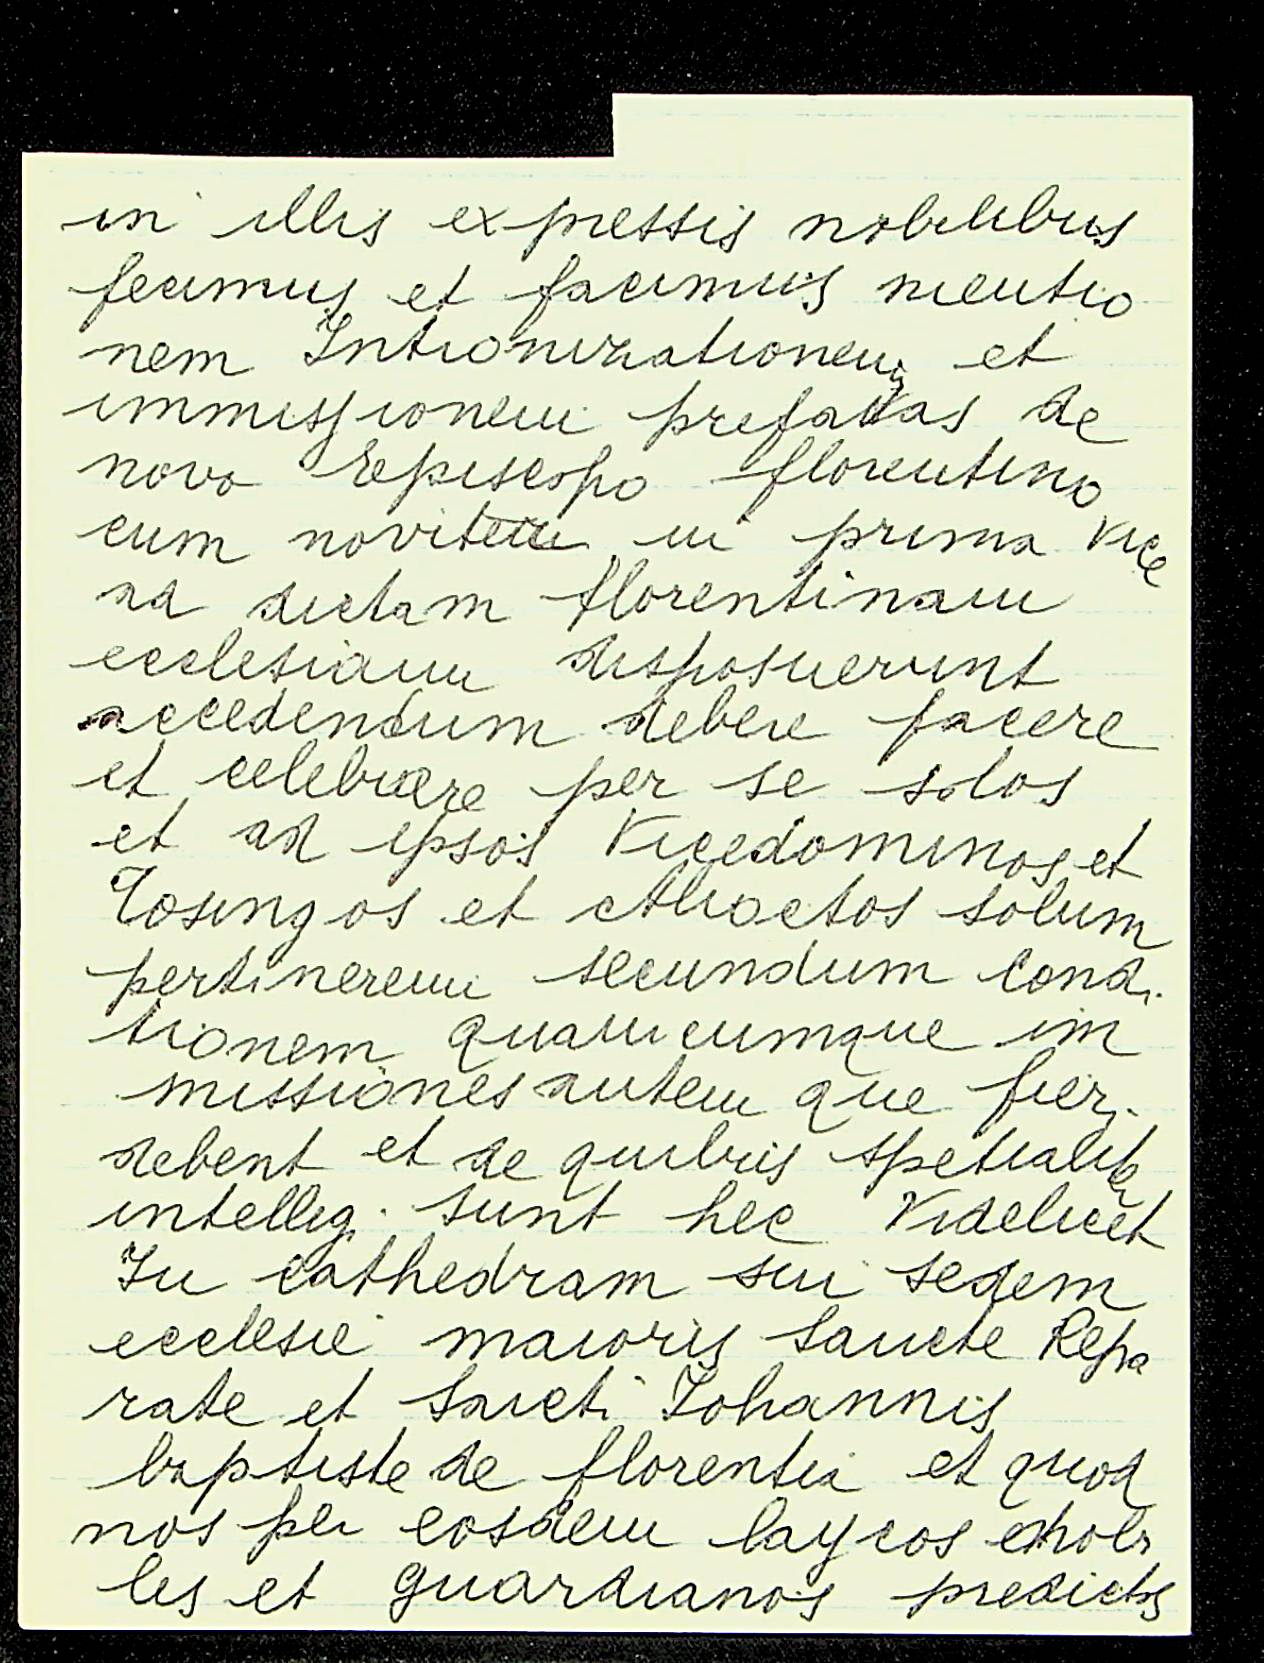 in illis expressis nobilibus
fecimus et facimus mentio
nem Intronizationem et
immissionem prefatas de
novo Episcopo florentino
cum noviter in prima vice
ad dictam florentinam
ecclesiam disposuerunt
accedendum debere facere
et celebrare per se solos
et ad ipsos Vicedominos et
Tosingos et Alioctos solum
pertinerem secundum condi
tionem quamcumque im
missiones autem que fieri
debent et de quibus spetialiter
intellig. sunt hec Videlicet
In cathedram sui sedem
ecclesie maioris Sancte Repa
rate et Sancti Iohannis
baptiste de florentia et quod
nos per eosdem laycos
les et guardianos predictos